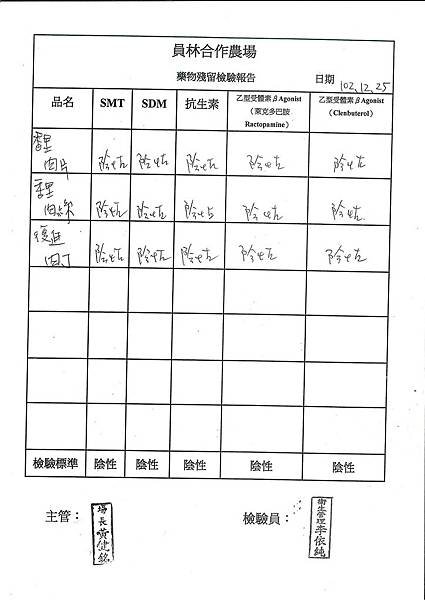 員林合作農場
藥物殘留檢驗報告
日期 102.12.25
品名 SMT SDM 抗生素 乙型受體素βAgonist (萊克多巴胺 Ractopamine) 乙型受體素βAgonist (Clenbuterol)
肉片 陰性 陰性 陰性 陰性 陰性
陰性 陰性 陰性 陰性 陰性
肉丁 陰性 陰性 陰性 陰性 陰性
檢驗標準 陰性 陰性 陰性 陰性 陰性
主管： 場長黃健銘
檢驗員： 衛生管理李依純